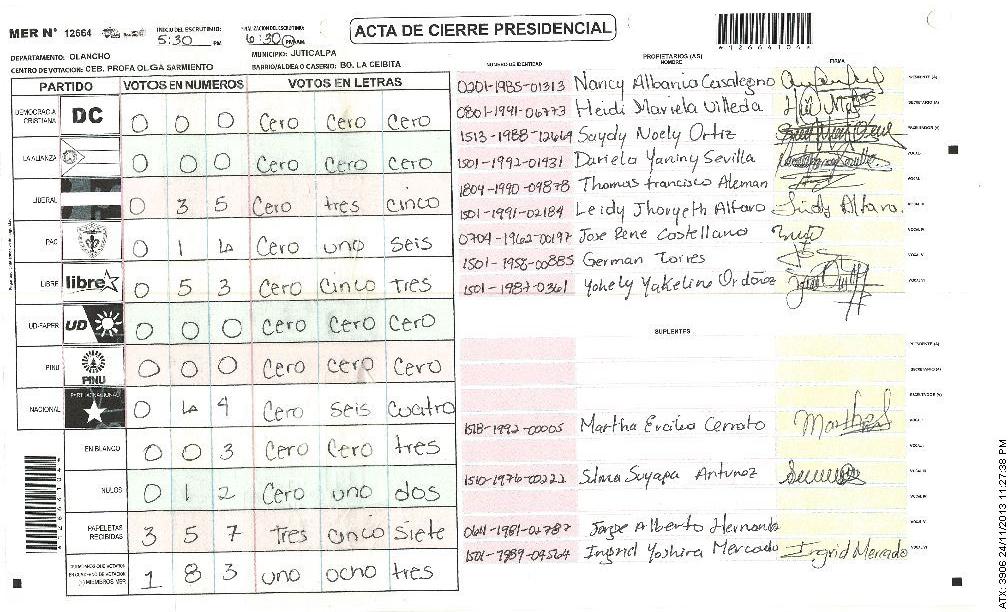 ACTA DE CIERRE PRESIDENCIAL
MER N° 12664
INICIO DEL ESCRUTINIO: 5:30 PM
FINALIZACION DEL ESCRUTINIO: 6:30 PM
DEPARTAMENTO: OLANCHO
MUNICIPIO: JUTICALPA
CENTRO DE VOTACION: CEB. PROFA OLGA SARMIENTO
BARRIO/ALDEA O CASERIO: BO. LA CEIBITA
PARTIDO VOTOS EN NUMEROS VOTOS EN LETRAS
DEMOCRACIA CRISTIANA DC 0 0 0 Cero Cero Cero
LA ALIANZA 0 0 0 Cero Cero Cero
LIBERAL 0 3 5 Cero tres cinco
PAC 0 1 6 Cero uno seis
LIBRE libre 0 5 3 Cero cinco tres
UD-FAPER UD 0 0 0 Cero Cero Cero
PINU PINU 0 0 0 Cero Cero Cero
NACIONAL PARTIDO NACIONAL 0 6 4 Cero seis cuatro
EN BLANCO 0 0 3 Cero Cero tres
NULOS 0 1 2 Cero uno dos
PAPELETAS RECIBIDAS 3 5 7 Tres cinco siete
1 8 3 uno ocho tres
PROPIETARIOS (AS)
NUMERO DE IDENTIDAD NOMBRE FIRMA
0201-1985-01313 Nancy Albania Casalegno
0801-1991-06773 Heidi Mariela Villeda
1513-1988-12664 Saydy Noely Ortiz
1501-1992-01931 Dariela Yaniny Sevilla
1804-1990-09878 Thomas Francisco Aleman
1501-1991-02184 Leidy Jhoryeth Alfaro
0704-1962-00197 Jose Rene Costellano
1501-1958-00885 German Torres
1501-1987-0361 Yohely Yakeline Ordoñez
SUPLENTES
1518-1992-00005 Martha Ercilia Cerrato
1510-1976-00222 Silma Suyapa Antunez
Jorge Alberto Hernande
1501-1989-04564 Ingrid Yoshira Mercado Ingrid Mercado
ATX: 3906 24/11/2013 11:27:38 PM